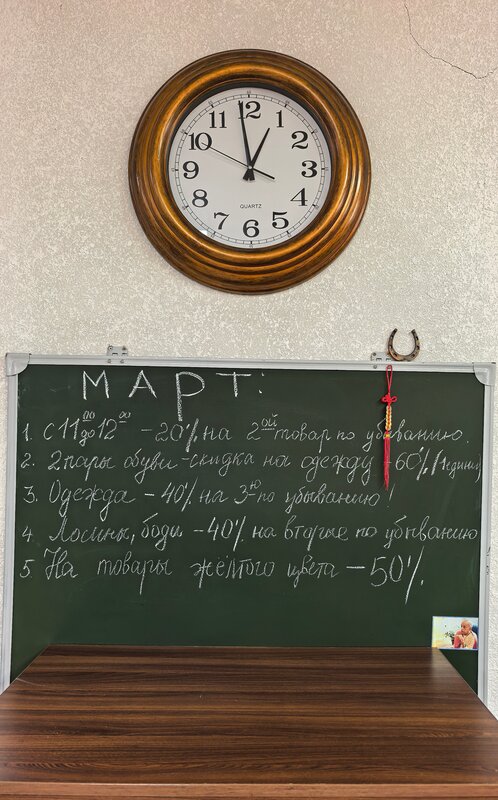 12
11 1
10 2
9 3
8 4
7 5
6
QUARTZ
МАРТ:
1. с 11⁰⁰ до 12⁰⁰ -20% на 2ой товар по убыванию
2. 2 пары обуви - скидка на одежду -60% (1 единиц)
3. Одежда -40% на 3ю по убыванию!
4. Лосины, боди -40% на вторые по убыванию
5 На товары жёлтого цвета -50%.